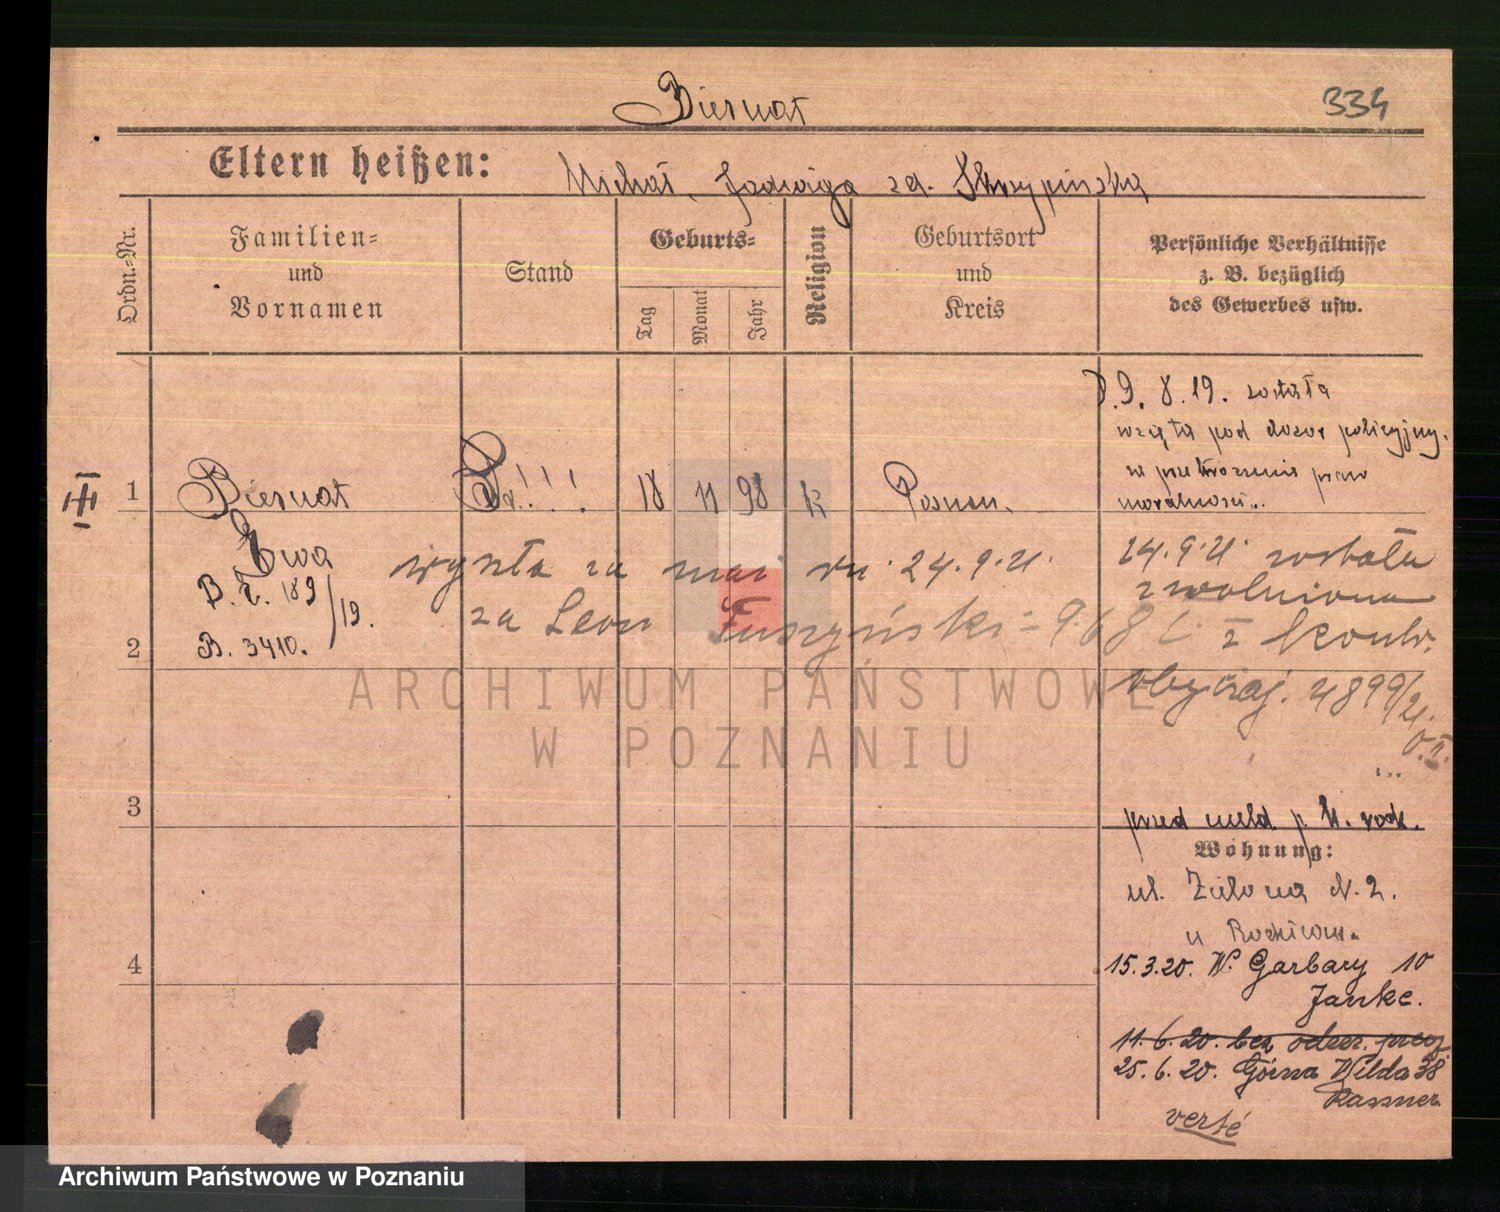 Biernat
334
Eltern heißen: Michał, Jadwiga zd. Skrzypińska
Ordn.-Nr.
Familien-
und
Vornamen
Stand
Geburts-
Tag
Monat
Jahr
Religion
Geburtsort
und
Kreis
Persönliche Verhältnisse
z. B. bezüglich
des Gewerbes usw.
D. 9. 8. 19. została
wzięta pod dozor policyjny.
w przekroczeniu praw
moralności..
III
1
Biernat
!!!
18
11
98
k
Poznan.
Ewa
B. 3410.
wyszła za mąż dn. 24.9.21.
za Leon Fuszyński - 968
24.9.21. została
zwolniona
z kontr.
obyczaj. 4899/21.
2
3
4
przed meld. p. K. rodz.
Wohnung:
ul. Zielona N. 2.
u Rodziców.
15.3.20. W. Garbary 10
Janke.
11.6.20. bez
25.6.20. Górna Wilda 38
Kassner
verté
ARCHIWUM PAŃSTWOWE
W POZNANIU
Archiwum Państwowe w Poznaniu